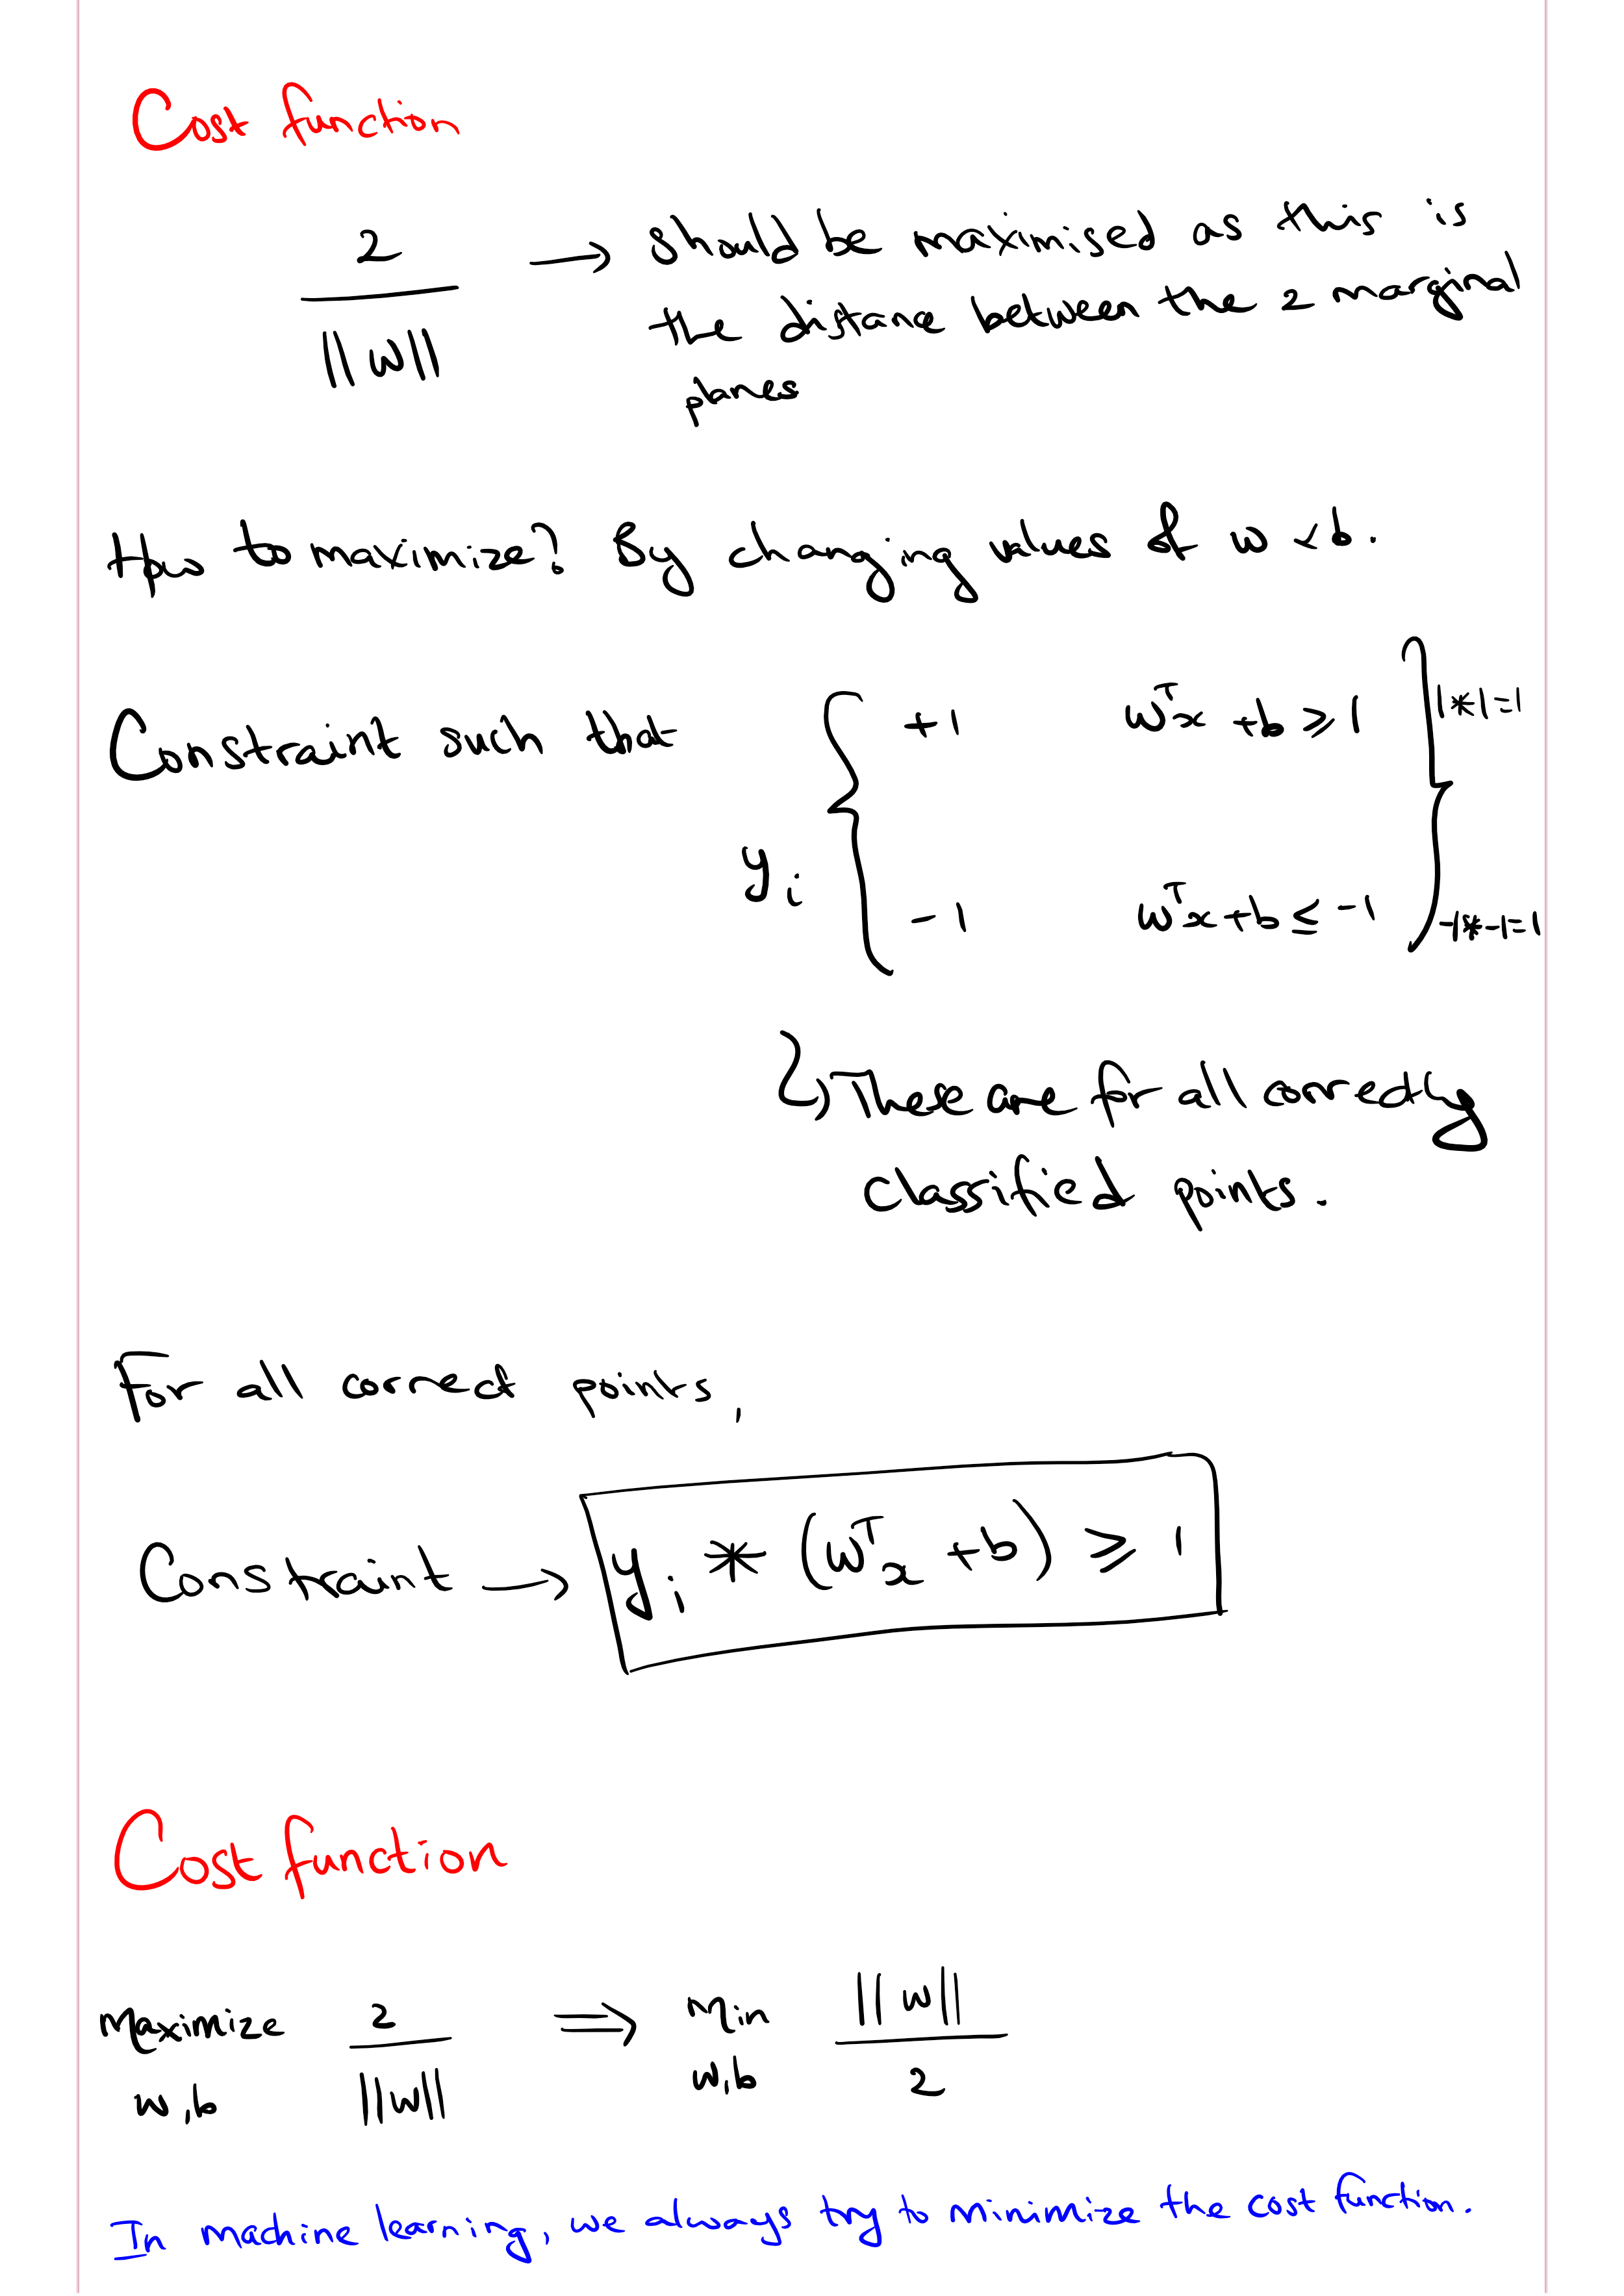 Cost function
2 / ||w|| → should be maximised as this is
the distance between the 2 marginal
planes
How to maximize? By changing values of w & b.
Constraint such that y_i { +1 wᵀx + b ≥ 1 } 1*1=1
-1 wᵀx + b ≤ -1 } -1*-1=1
These are for all correctly
classified points.
For all correct points,
Constraint → y_i * (wᵀx + b) ≥ 1
Cost function
Maximize w,b 2 / ||w|| ⇒ Min w,b ||w|| / 2
In machine learning, we always try to minimize the cost function.